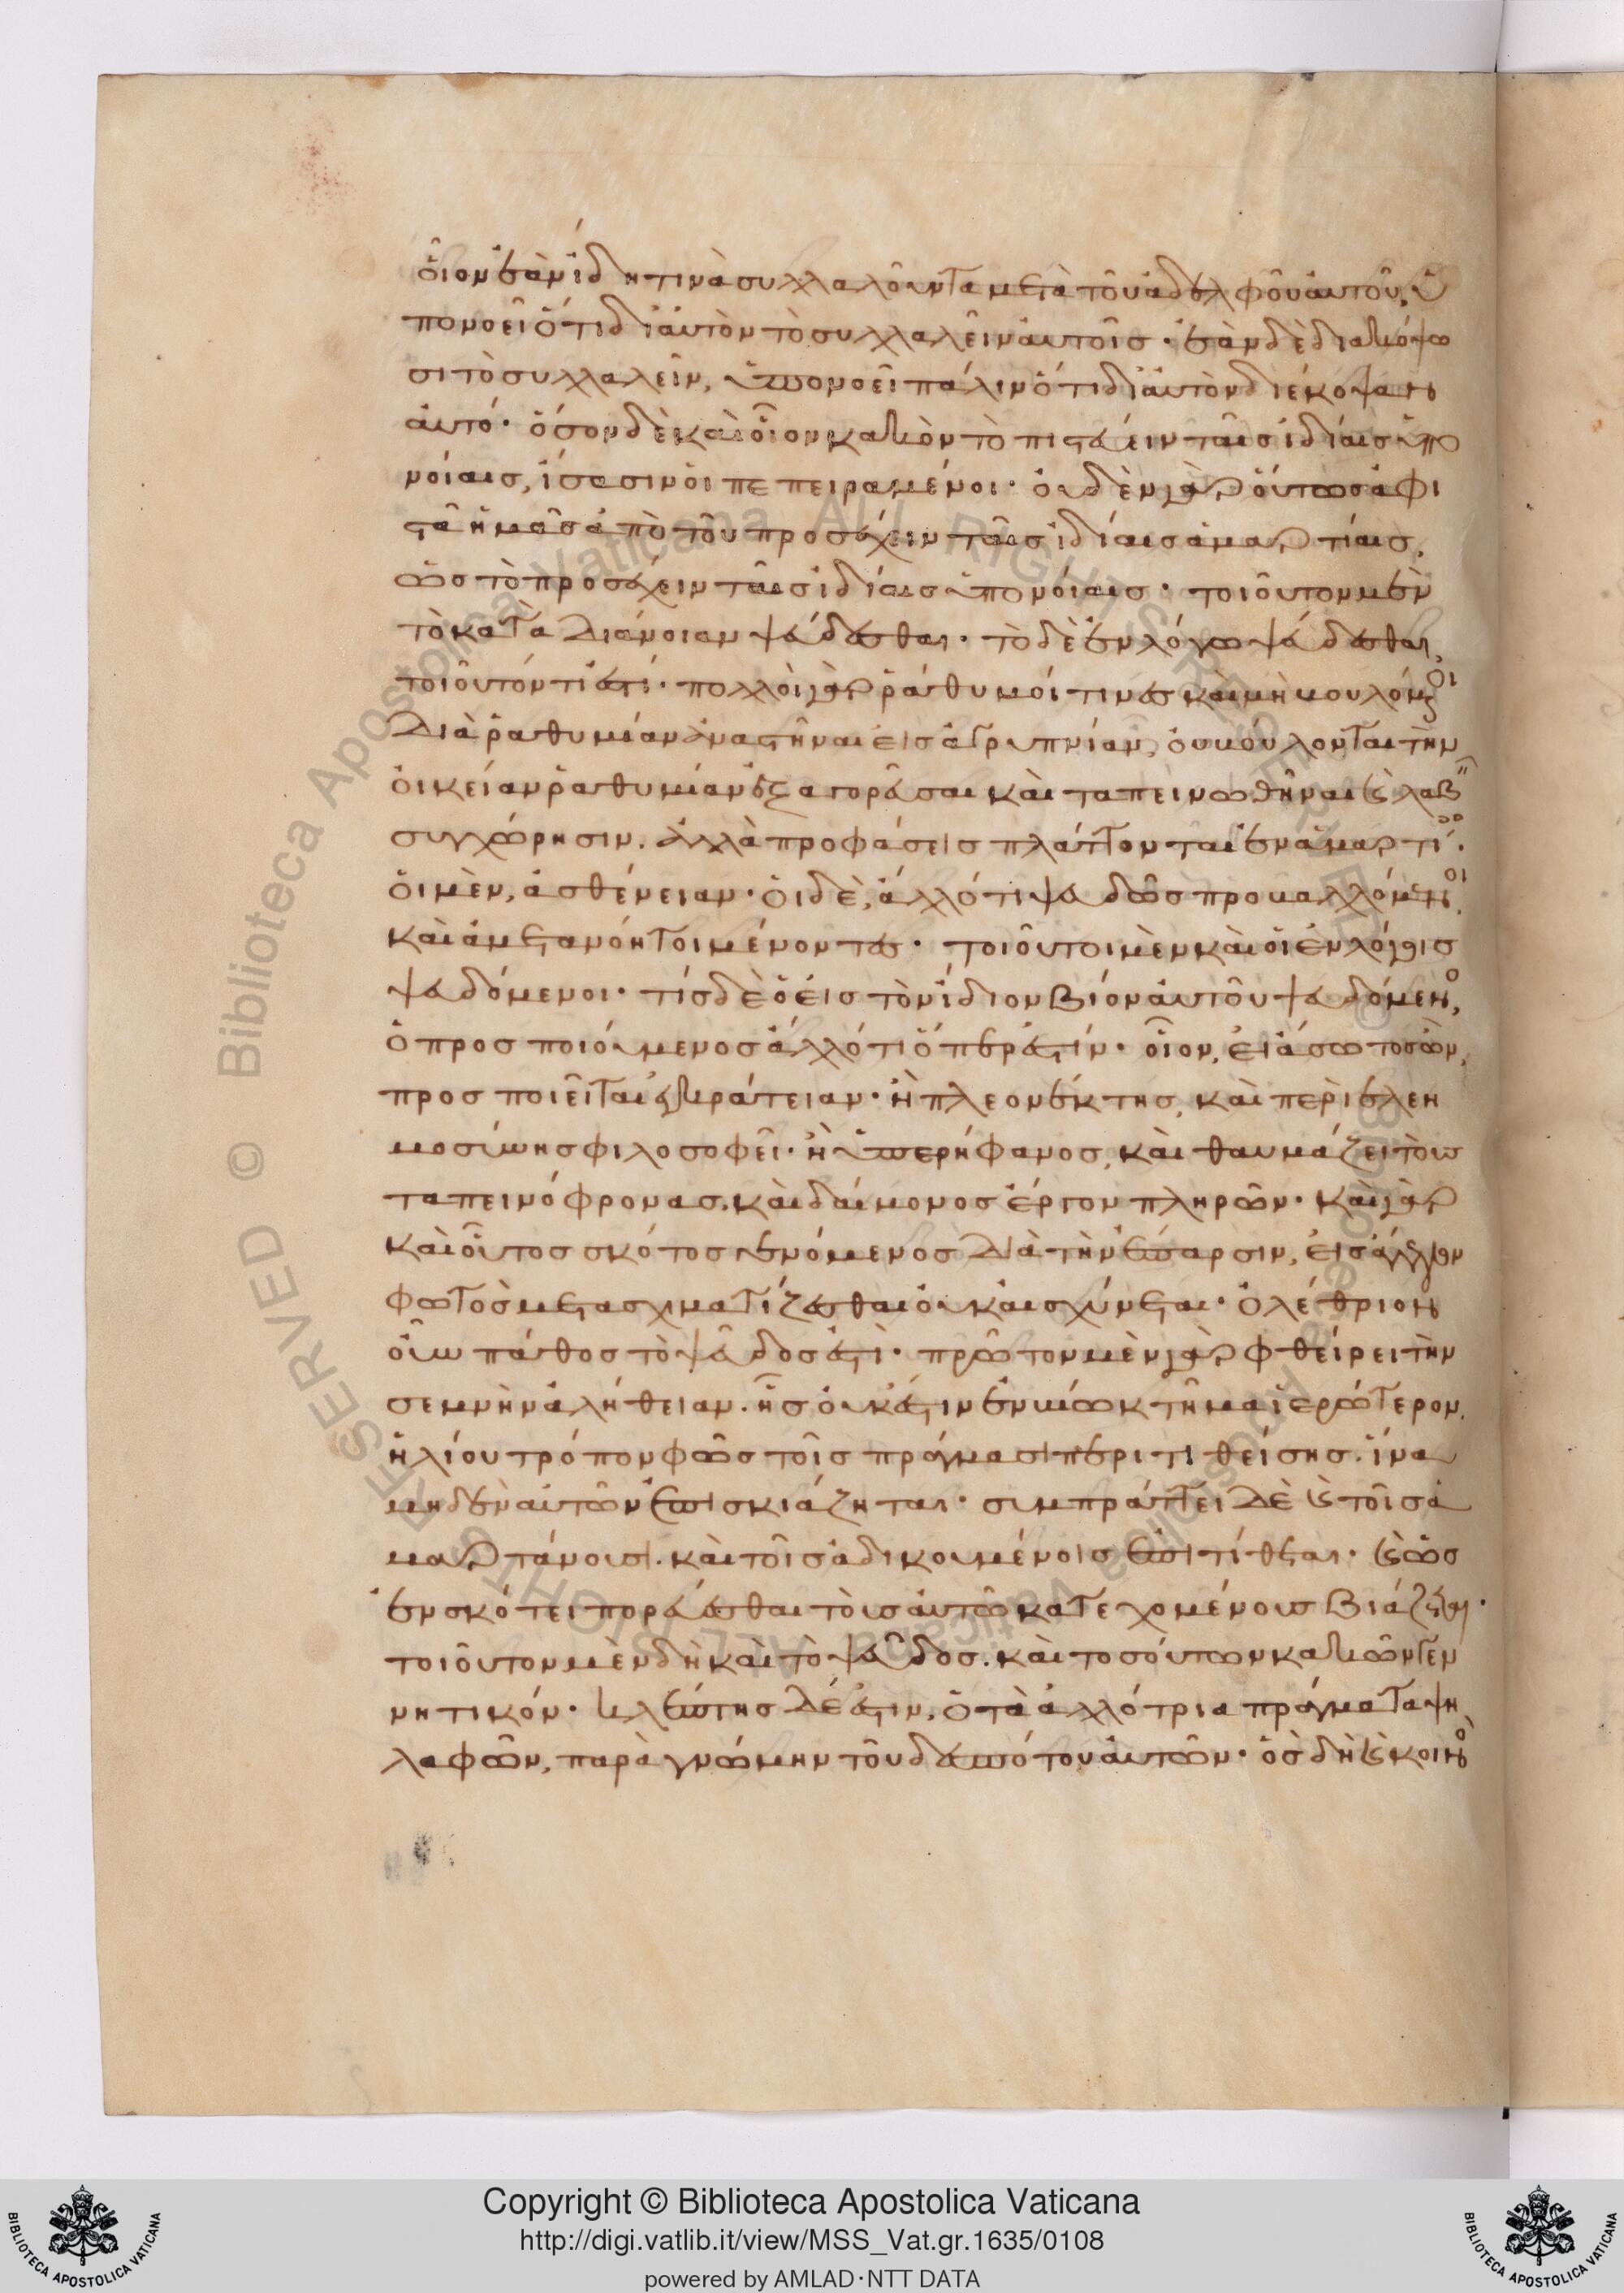 οἷον ἐὰν ἴδη τινὰ συλλαλοῦντα μετὰ τοῦ ἀδελφοῦ αὐτοῦ, ὑ
πονοεῖ ὅτι δι' αὐτὸν τὸ συλλαλεῖν αὐτοῖς· ἐὰν δὲ διακόψω
σι τὸ συλλαλεῖν, ὑπονοεῖ πάλιν ὅτι δι' αὐτὸν διέκοψαν
αὐτό· ὅσον δὲ καὶ οἷον κακὸν τὸ πιστεύειν ταῖς ἰδίαις ὑπο
νοίαις, ἴσασιν οἱ πεπειραμένοι· οὐδὲν γὰρ οὕτως ἀφι
στᾶ ἡμᾶς ἀπὸ τοῦ προσέχειν ταῖς ἰδίαις ἁμαρτίαις,
ὡς τὸ προσέχειν ταῖς ἰδίαις ὑπονοίαις· τοιοῦτον μὲν
τὸ κατὰ διάνοιαν ψεύδεσθαι· τὸ δὲ ἐν λόγω ψεύδεσθαι,
τοιοῦτόν τι ἐστί· πολλοὶ γὰρ ῥάθυμοί τινες καὶ μὴ βουλόμενοι
διὰ ῥαθυμίαν ἀναστῆναι εἰς ἀγρυπνίαν, οὐ βούλονται τὴν
οἰκείαν ῥαθυμίαν ἐξαγορεῦσαι καὶ ταπεινωθῆναι καὶ λαβεῖν
συγχώρησιν. ἀλλὰ προφάσεις πλάττονται ἐν ἁμαρτίαις·
οἱ μὲν, ἀσθένειαν· οἱ δὲ, ἄλλό τι ψευδῶς προβαλλόμενοι,
καὶ ἀμετανόητοι μένοντες· τοιοῦτοι μὲν καὶ οἱ ἐν λόγοις
ψευδόμενοι· τίς δὲ ὁ εἰς τὸν ἴδιον βίον αὐτοῦ ψευδόμενος,
ὁ προσποιούμενος ἄλλό τι ὅπερ ἐστίν· οἷον, εἰ ἄσωτος ὢν,
προσποιεῖται ἐγκράτειαν· ἢ πλεονέκτης, καὶ περὶ ἐλεη
μοσύνης φιλοσοφεῖ· ἢ ὑπερήφανος, καὶ θαυμάζει τοὺς
ταπεινόφρονας. καὶ δαίμονος ἔργον πληρῶν· καὶ γὰρ
καὶ οὗτος σκότος γενόμενος διὰ τὴν ἔπαρσιν, εἰς ἄγγελον
φωτὸς μετασχηματίζεσθαι οὐκ αἰσχύνεται· ὀλέθριον
οὖν πάθος τὸ ψεῦδος ἐστὶ· πρῶτον μὲν γὰρ φθείρει τὴν
σεμνὴν ἀλήθειαν. ἧς οὐκ ἔστιν ἐν βίω κτῆμα ἱερώτερον,
ἡλίου τρόπον φῶς τοῖς πράγμασι περιτιθείσης. ἵνα
μηδὲν αὐτῶν ἐπισκιάζηται· συμπράττει δὲ καὶ τοῖς ἁ
μαρτάνουσι. καὶ τοῖς ἀδικουμένοις ἐπιτίθεται· καὶ ὡς
ἐν σκότει πορεύεσθαι τοὺς αὐτῶ κατεχομένους βιάζεται·
τοιοῦτον μὲν δὴ καὶ τὸ ψεῦδος. καὶ τοσούτων κακῶν γεν
νητικόν· κλέπτης δέ ἐστιν, ὁ τὰ ἀλλότρια πράγματα ψη
λαφῶν, παρὰ γνώμην τοῦ δεσπότου αὐτῶν· ὃς δὴ καὶ κοινὸς
Copyright © Biblioteca Apostolica Vaticana
http://digi.vatlib.it/view/MSS_Vat.gr.1635/0108
powered by AMLAD·NTT DATA